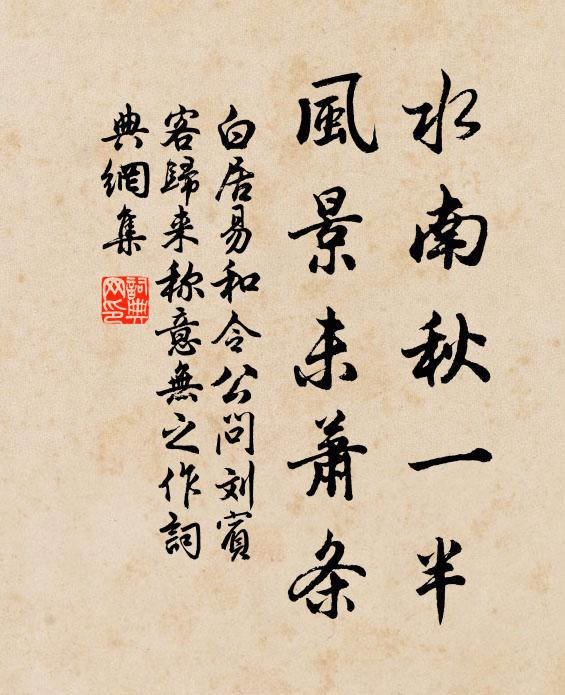 水南秋一半
風景未蕭条
白居易和令公問刘賓
客歸来称意無之作詞
典網集
詞典网印